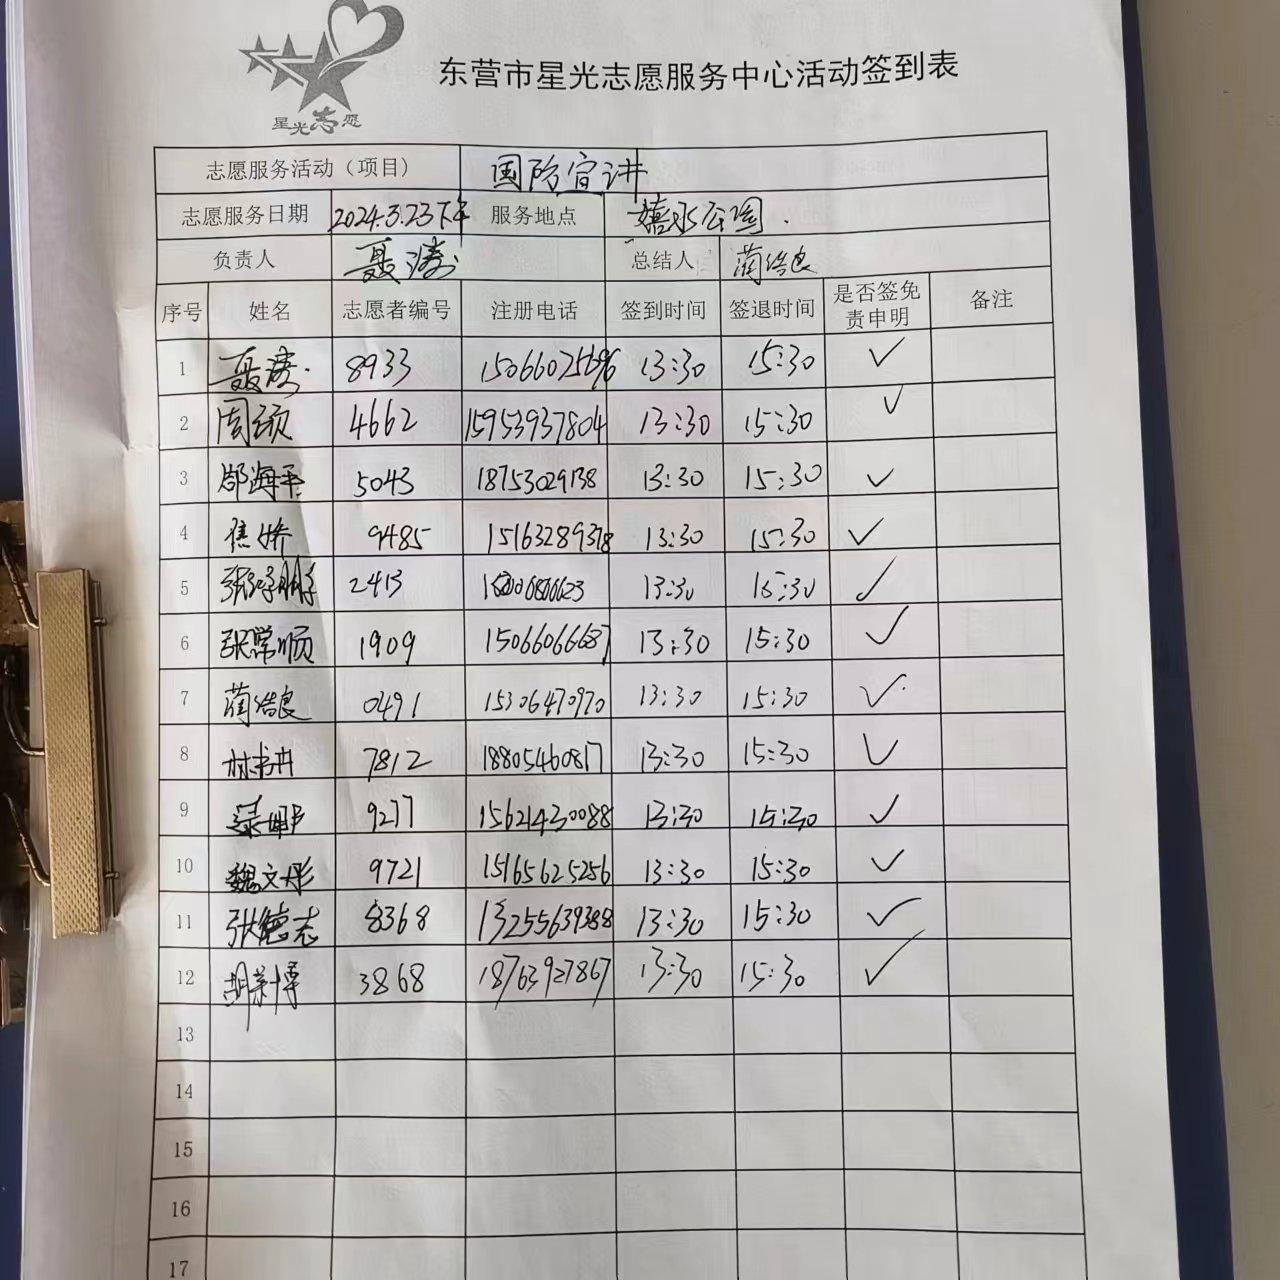 星光志愿
东营市星光志愿服务中心活动签到表
志愿服务活动（项目） 国防宣讲
志愿服务日期 2024.3.23下午 服务地点 嬉水公园
负责人 聂涛 总结人 蔺浩良
序号 姓名 志愿者编号 注册电话 签到时间 签退时间 是否签免责申明 备注
1 聂涛 8933 13:30 15:30 ✓
2 周颂 4662 15953937804 13:30 15:30 ✓
3 邵海平 5043 18753029138 13:30 15:30 ✓
4 焦娇 9485 15163289378 13:30 15:30 ✓
5 2413 13:30 15:30 ✓
6 张常顺 1909 15066066687 13:30 15:30 ✓
7 蔺浩良 0491 15306470970 13:30 15:30 ✓
8 林书卉 7812 18805460817 13:30 15:30 ✓
9 9277 15621430088 13:30 15:30 ✓
10 魏文彤 9721 15165625256 13:30 15:30 ✓
11 张德志 8368 13255639388 13:30 15:30 ✓
12 胡荣博 3868 18763927867 13:30 15:30 ✓
13
14
15
16
17